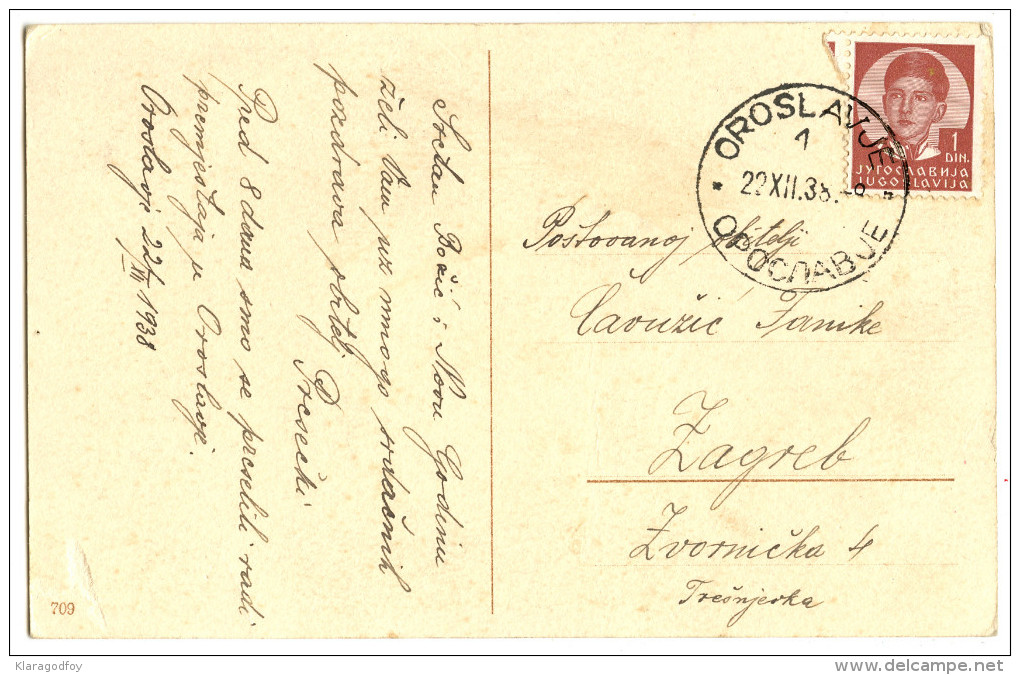 Sretan Božić i Novu Godinu
želi Vam uz mnogo srdačnih
pozdrava obitelj
Presečki
Pred 8 dana smo se preselili radi
premještaja u Oroslavje.
Oroslavje 22/XII 1938
709
OROSLAVJE
1
22.XII.38.
ОРОСЛАВЈЕ
1
DIN.
ЈУГОСЛАВИЈА
JUGOSLAVIJA
Poštovanoj obitelji
Cavužić Janike
Zagreb
Zvornička 4
Trešnjevka
Klaragodfoy
delcampe.net